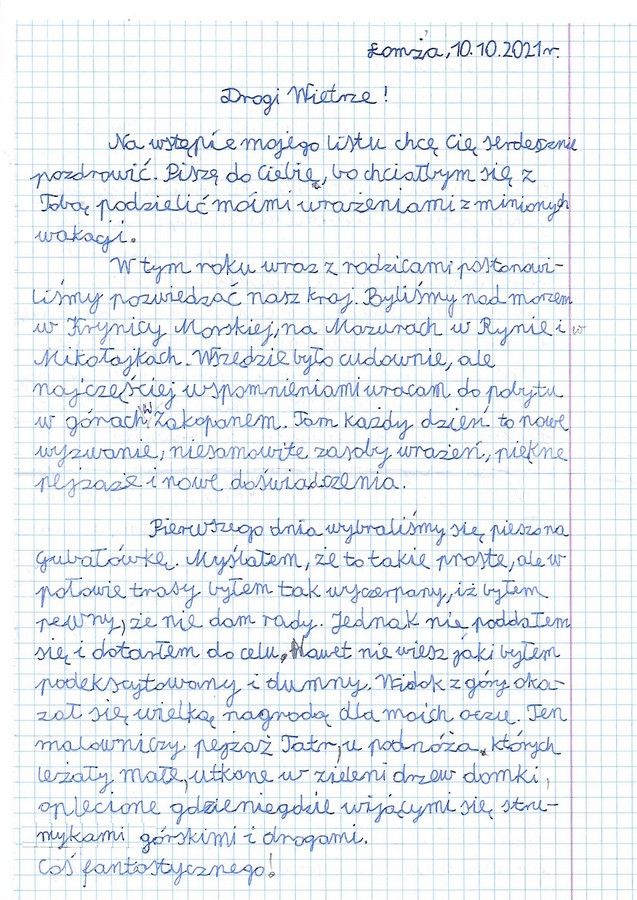 Łomża, 10.10.2021r.
Drogi Wietrze!
Na wstępie mojego listu chcę Cię serdecznie
pozdrowić. Piszę do Ciebie, bo chciałbym się z
Tobą podzielić moimi wrażeniami z minionych
wakacji.
W tym roku wraz z rodzicami postanowi-
liśmy pozwiedzać nasz kraj. Byliśmy nad morzem
w Krynicy Morskiej, na Mazurach w Rynie i w
Mikołajkach. Wszędzie było cudownie, ale
najczęściej wspomnieniami wracam do pobytu
w górach w Zakopanem. Tam każdy dzień to nowe
wyzwanie, niesamowite zasoby wrażeń, piękne
pejzaże i nowe doświadczenia.
Pierwszego dnia wybraliśmy się pieszo na
Gubałówkę. Myślałem, że to takie proste, ale w
połowie trasy byłem tak wyczerpany, iż byłem
pewny, że nie dam rady. Jednak nie poddałem
się i dotarłem do celu. Nawet nie wiesz jaki byłem
podekscytowany i dumny. Widok z góry oka-
zał się wielką nagrodą dla moich oczu. Ten
malowniczy pejzaż Tatr, u podnóża których
leżały małe, utkane w zieleni drzew domki,
oplecione gdzieniegdzie wijącymi się stru-
mykami górskimi i drogami.
Coś fantastycznego!